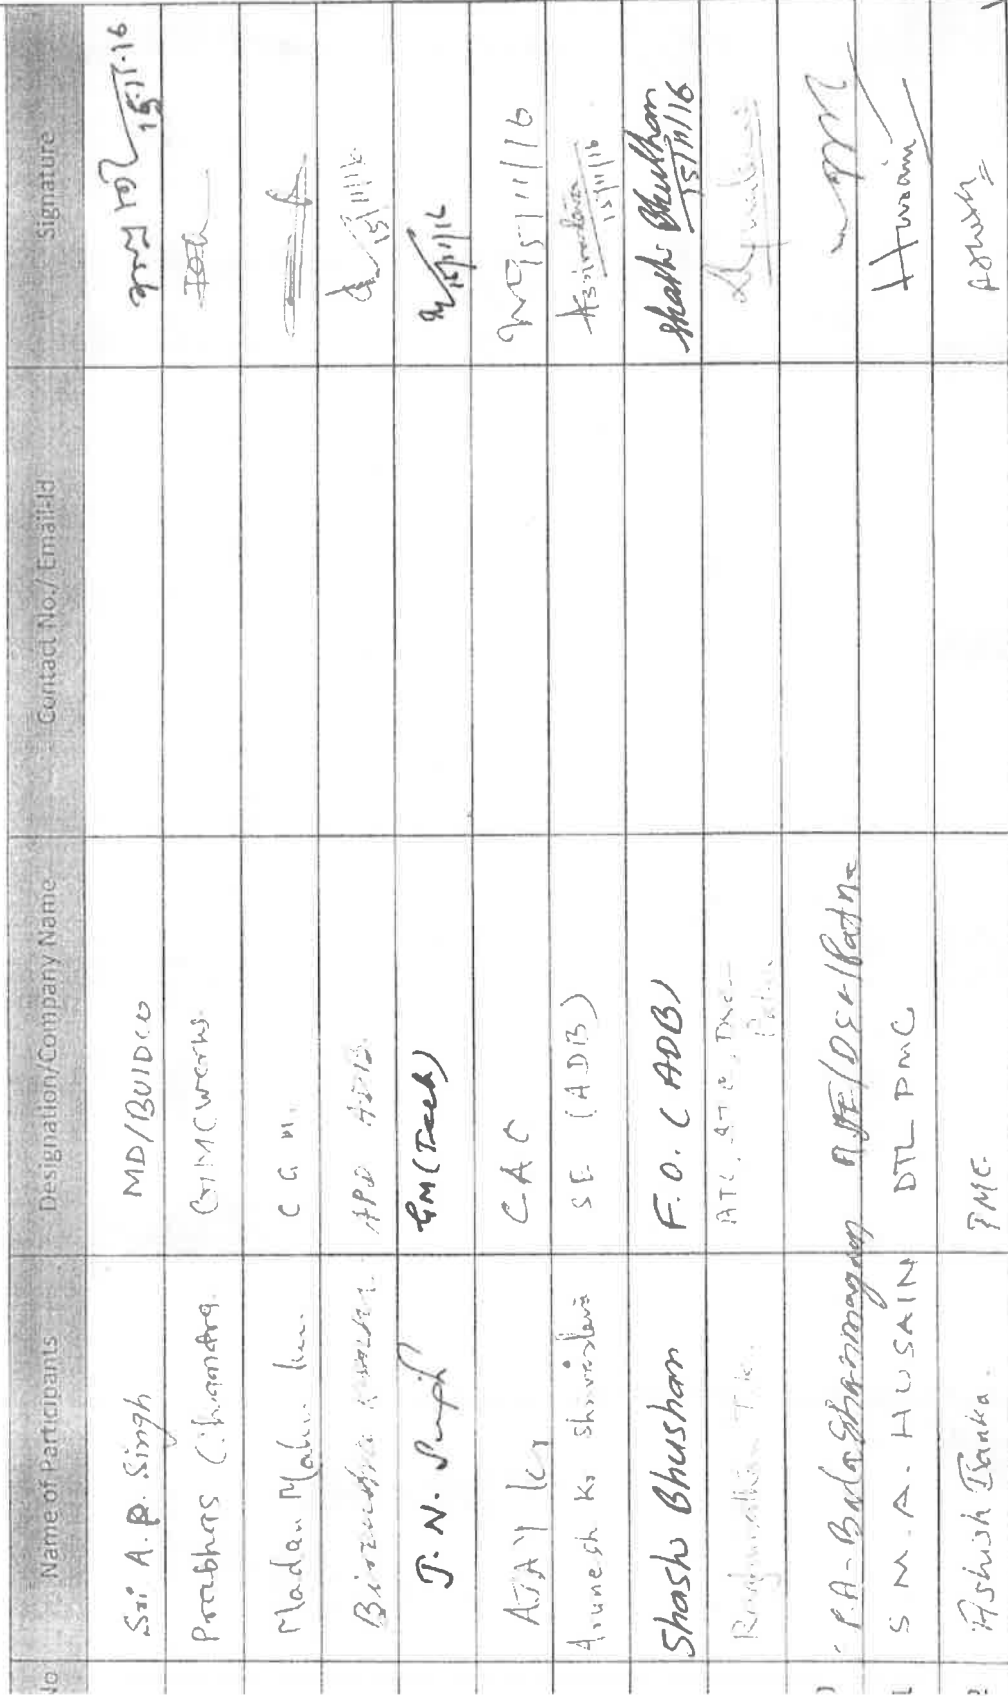 No Name of Participants Designation/Company Name Contact No./ Email-Id Signature
Sri A.P. Singh MD/BUIDCO 15.11.16
Prabhas Chandra. GM(Works.
Madan Mohan Ku. CGM
Birendra APD ADB 15/11/16
J.N. Singh GM(Tech) 15/11/16
AJAY Kr CAC 15/11/16
Arunesh Kr Shrivastava SE (ADB) 15/11/16
Shashi Bhushan F.O. (ADB) Shashi Bhushan 15/11/16
P.A-BalaShanmagam /Patna
S M.A. HUSAIN DTL PMC Husain
Ashish PMC. Ashish